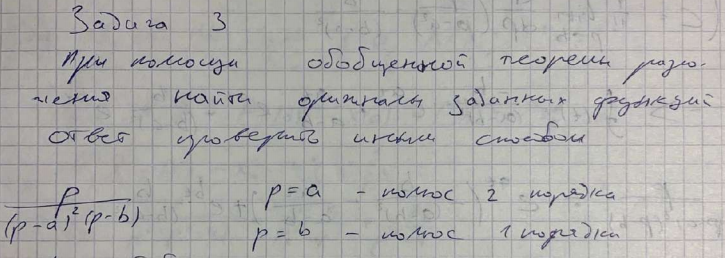 Задача 3
При помощи обобщенной теоремы разло-
жения найти оригиналы заданных функций
ответ проверить иным способом
p/((p-a)²(p-b)) p=a - полюс 2 порядка
p=b - полюс 1 порядка